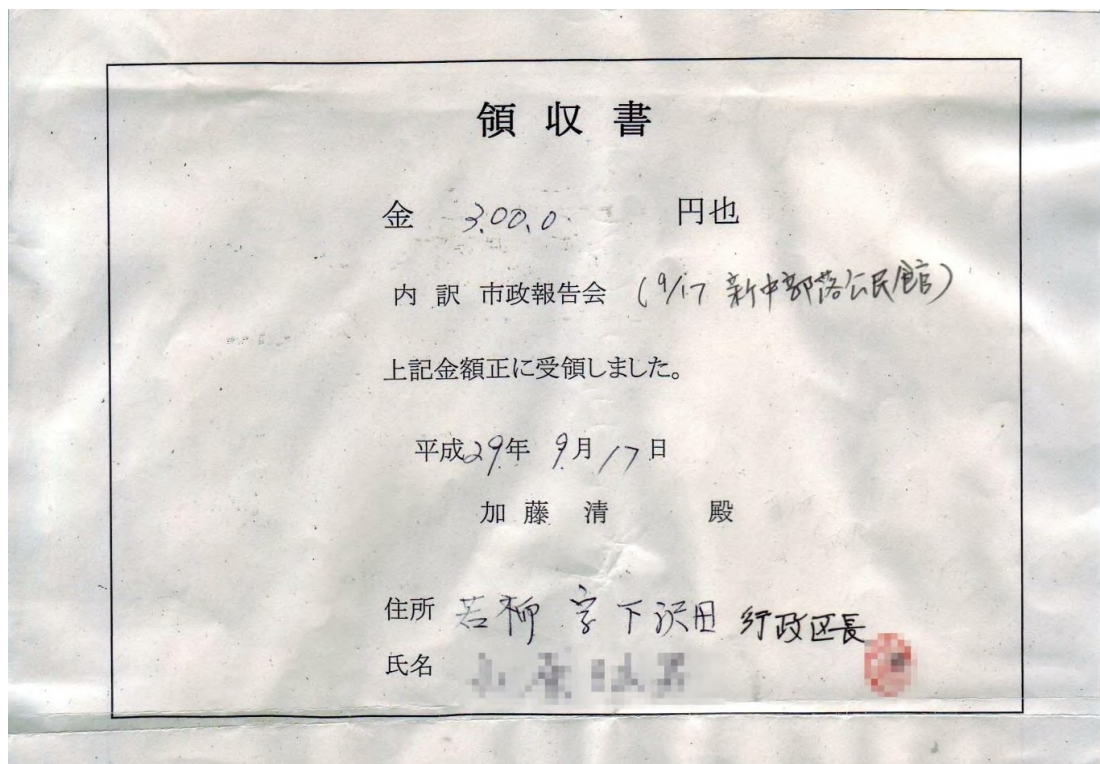 領収書
金 3,00,0 円也
内訳 市政報告会 (9/17 新中部落公民館)
上記金額正に受領しました。
平成29年 9月17日
加藤 清 殿
住所 若柳 字下沢田 行政区長
氏名